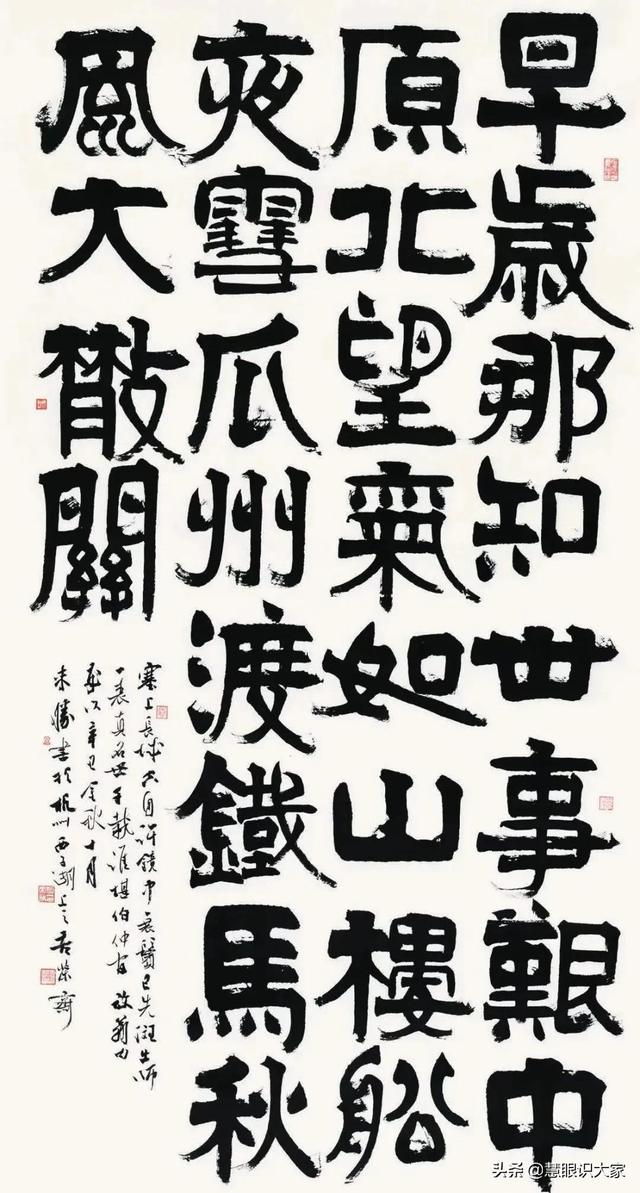 早歲那知世事艱中
原北望氣如山樓船
夜雪瓜州渡鐵馬秋
風大散關
塞上長城空自許鏡中衰鬢已先斑出師
一表真名世千載誰堪伯仲間放翁句
辛丑金秋十月
書於杭州西子湖上之齋
头条 @慧眼识大家